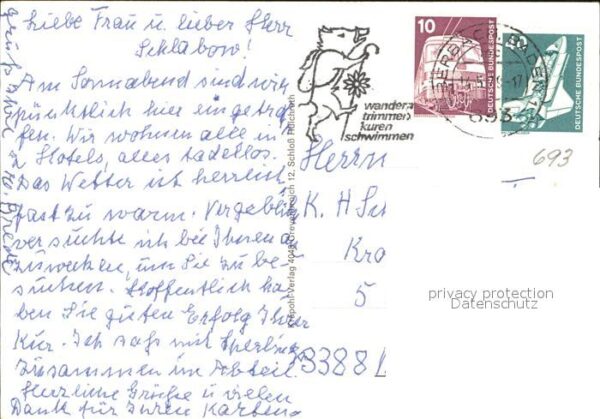 Liebe Frau u. lieber Herr
Schlabow!
Am Sonnabend sind wir
pünktlich hier eingetrof
fen. Wir wohnen alle in
2 Hotels, alles tadellos.
Das Wetter ist herrlich
fast zu warm. Vergebens
versuchte ich bei Ihnen a
zuwecken, um Sie zu be
suchen. Hoffentlich ha
ben Sie guten Erfolg Ihrer
Kur. Ich saß mit Sperling
zusammen im Abteil.
Herzliche Grüße u. vielen
Dank für Ihren Karten
wandern
trimmen
kuren
schwimmen
10
DEUTSCHE BUNDESPOST
50
DEUTSCHE BUNDESPOST
693
Herrn
K. H Sch
Kra
5
3388 L
Verlag 404 Grevenbroich 12, Schloß
privacy protection
Datenschutz